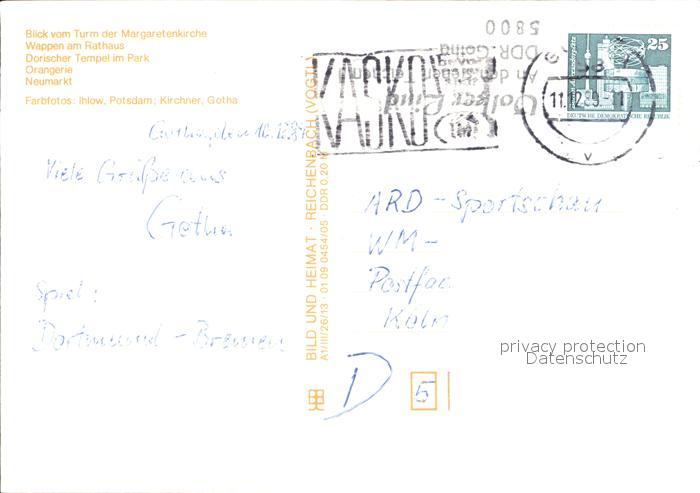 Blick vom Turm der Margaretenkirche
Wappen am Rathaus
Dorischer Tempel im Park
Orangerie
Neumarkt
Farbfotos: Ihlow, Potsdam; Kirchner, Gotha
Gotha, den 10.12.89
Viele Grüße aus
Gotha
Spiel:
Dortmund - Bremen
BILD UND HEIMAT · REICHENBACH (VOGTL
A1/III/26/13 · 01 09 0454/05 · DDR 0,20 M
KASKO
KASKO
Volker
An der
DDR-Gotha
5800
11.12.89-11
V
25
DEUTSCHE DEMOKRATISCHE REPUBLIK
ARD-Sportschau
WM-
Postfac
Köln
D
5
privacy protection
Datenschutz